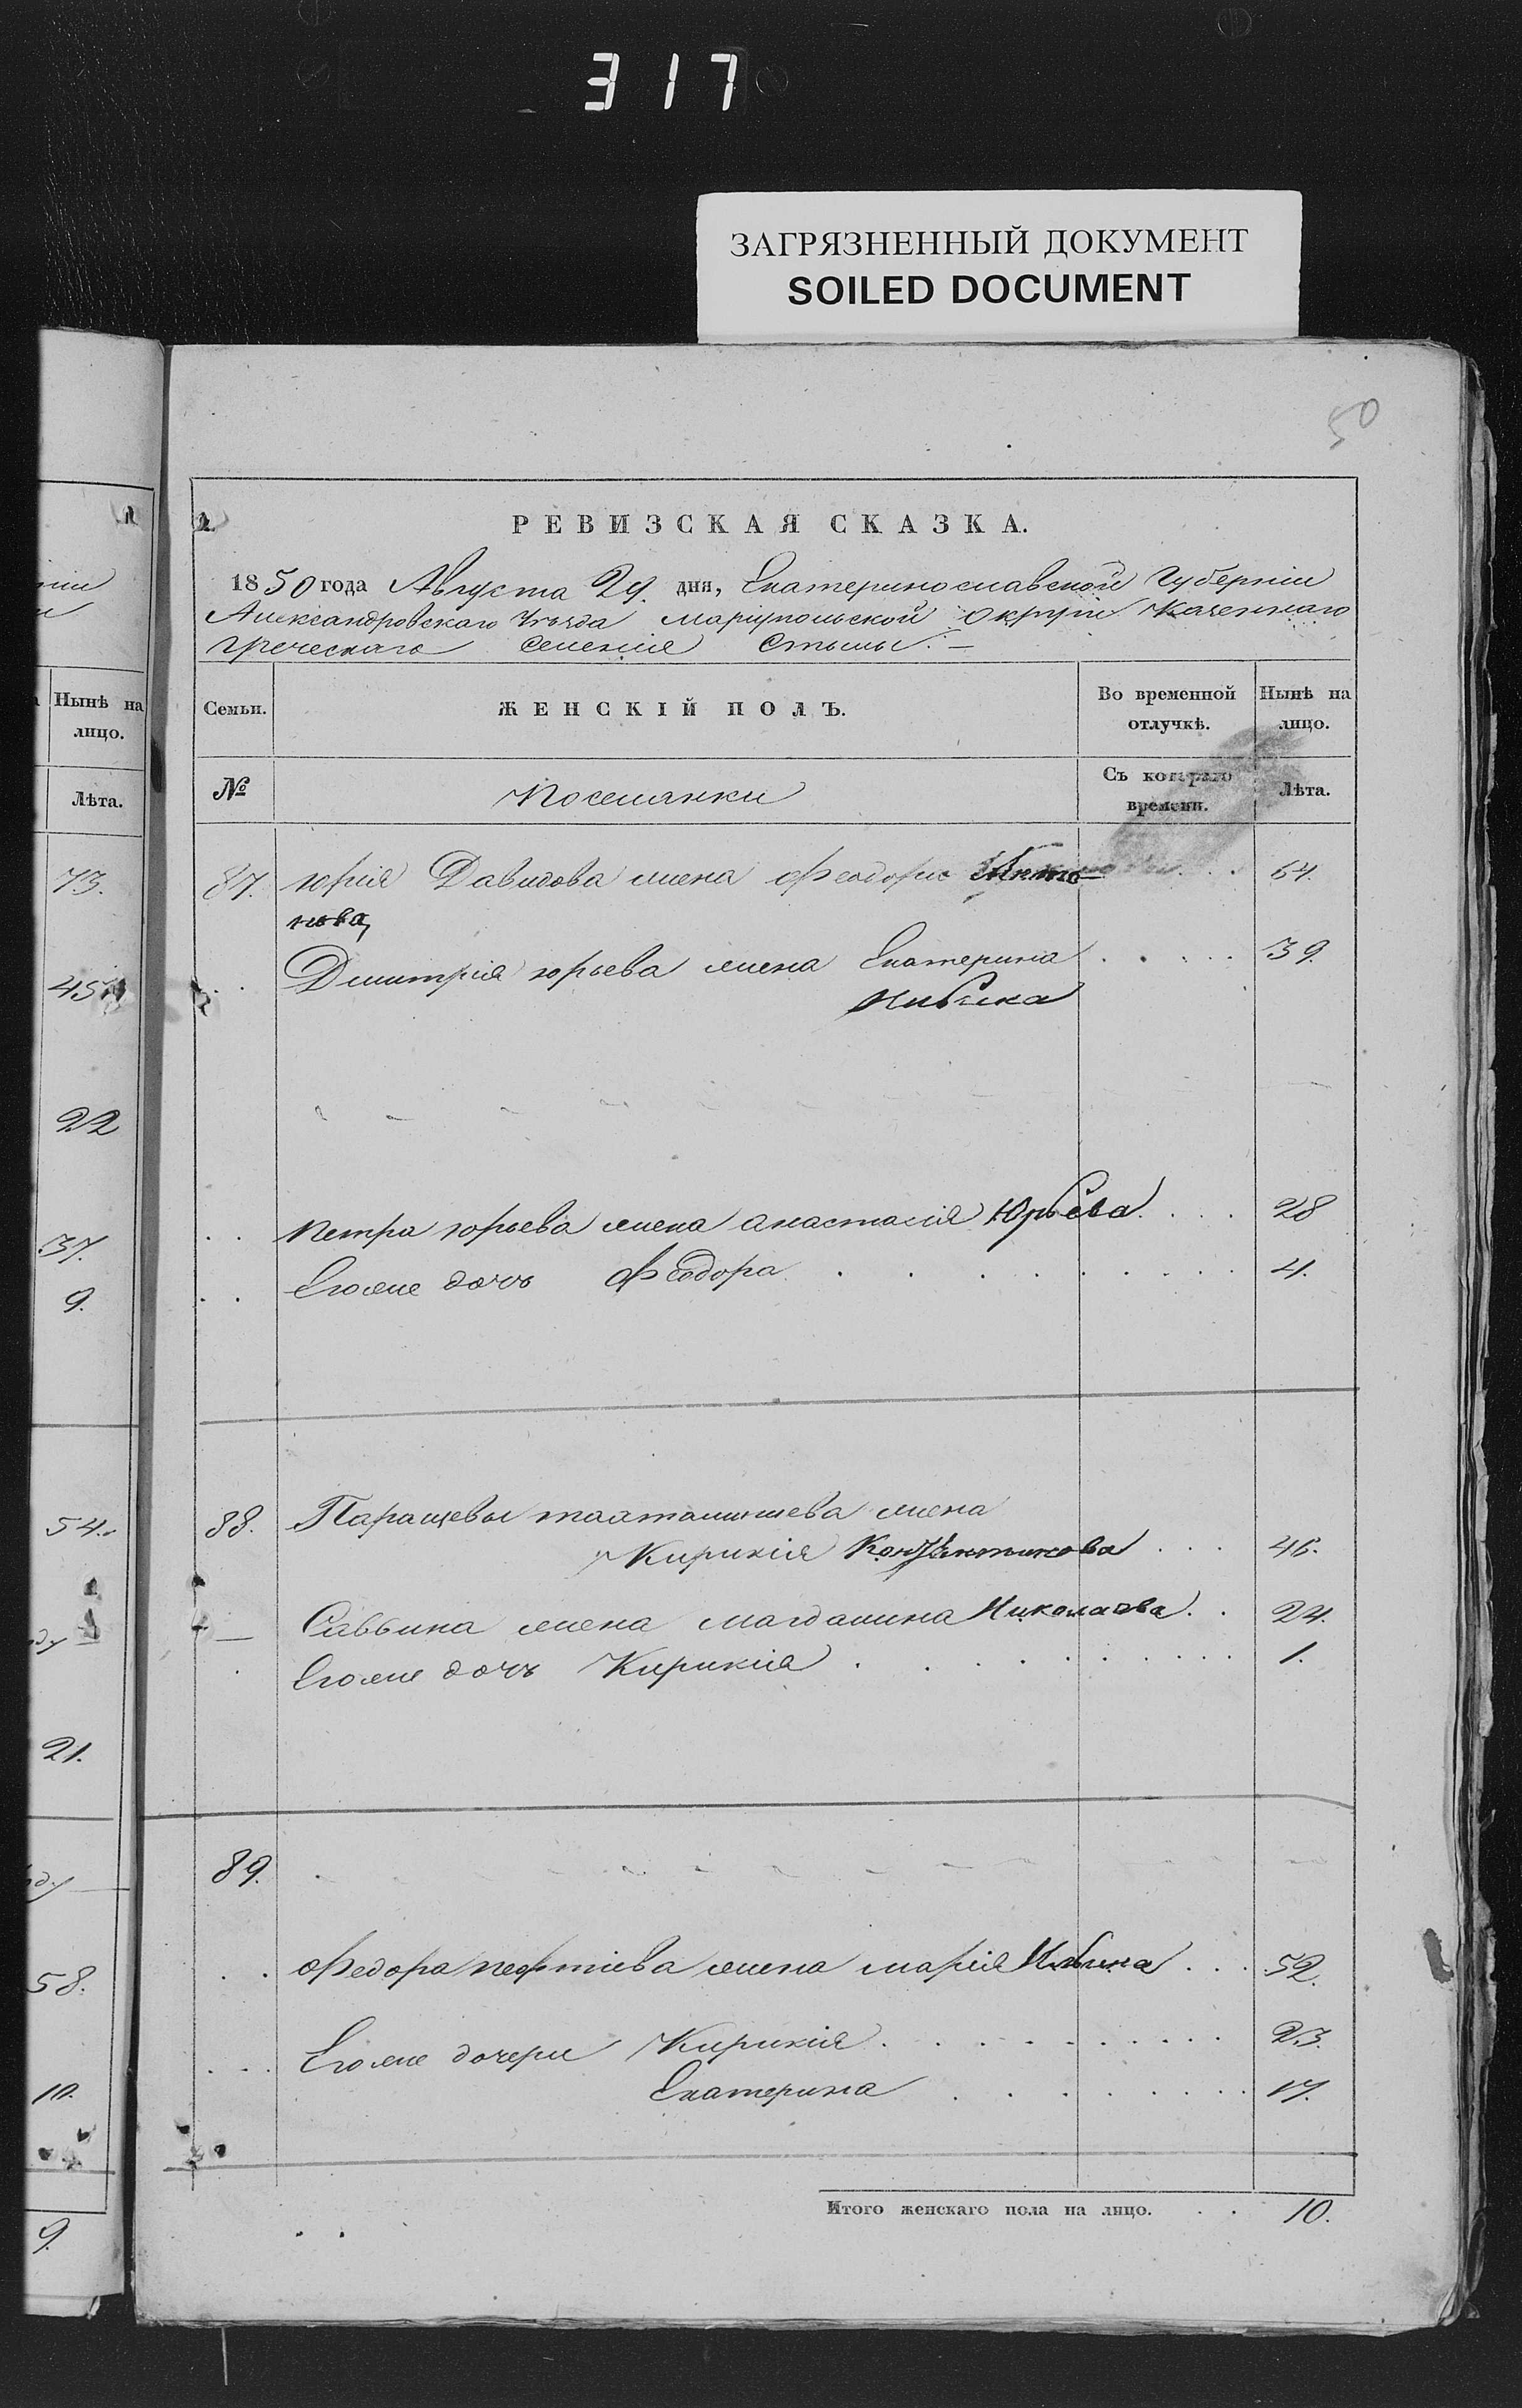 317
ЗАГРЯЗНЕННЫЙ ДОКУМЕНТ
SOILED DOCUMENT
50
РЕВИЗСКАЯ СКАЗКА.
1850 года Августа 29. дня, Екатеринославской Губерніи
Александровскаго Уѣзда Маріупольской округи Казеннаго
греческаго селенія Стылы. —
Семьи. ЖЕНСКІЙ ПОЛЪ. Во временной отлучкѣ. Нынѣ на лицо.
№ Поселянки Съ котораго времени. Лѣта.
87. юрія Давидова жена Феодора 64.
нова
Дмитрія юрьева жена Екатерина 39.
Ильина
Петра юрьева жена анастасія Юрьева 28
Егоже дочь Феодора 4.
88. Паращевы жена
Кирикія Константинова 46.
Саввина жена магдалина Николаева 24.
Егоже дочь Кирикія 1.
89.
Федора жена марія Ильина 52.
Егоже дочери Кирикія 23.
Екатерина 17.
Итого женскаго пола на лицо. 10.
Нынѣ на
лицо.
Лѣта.
73.
45
22
37.
9.
54.
21.
58.
10.
9.